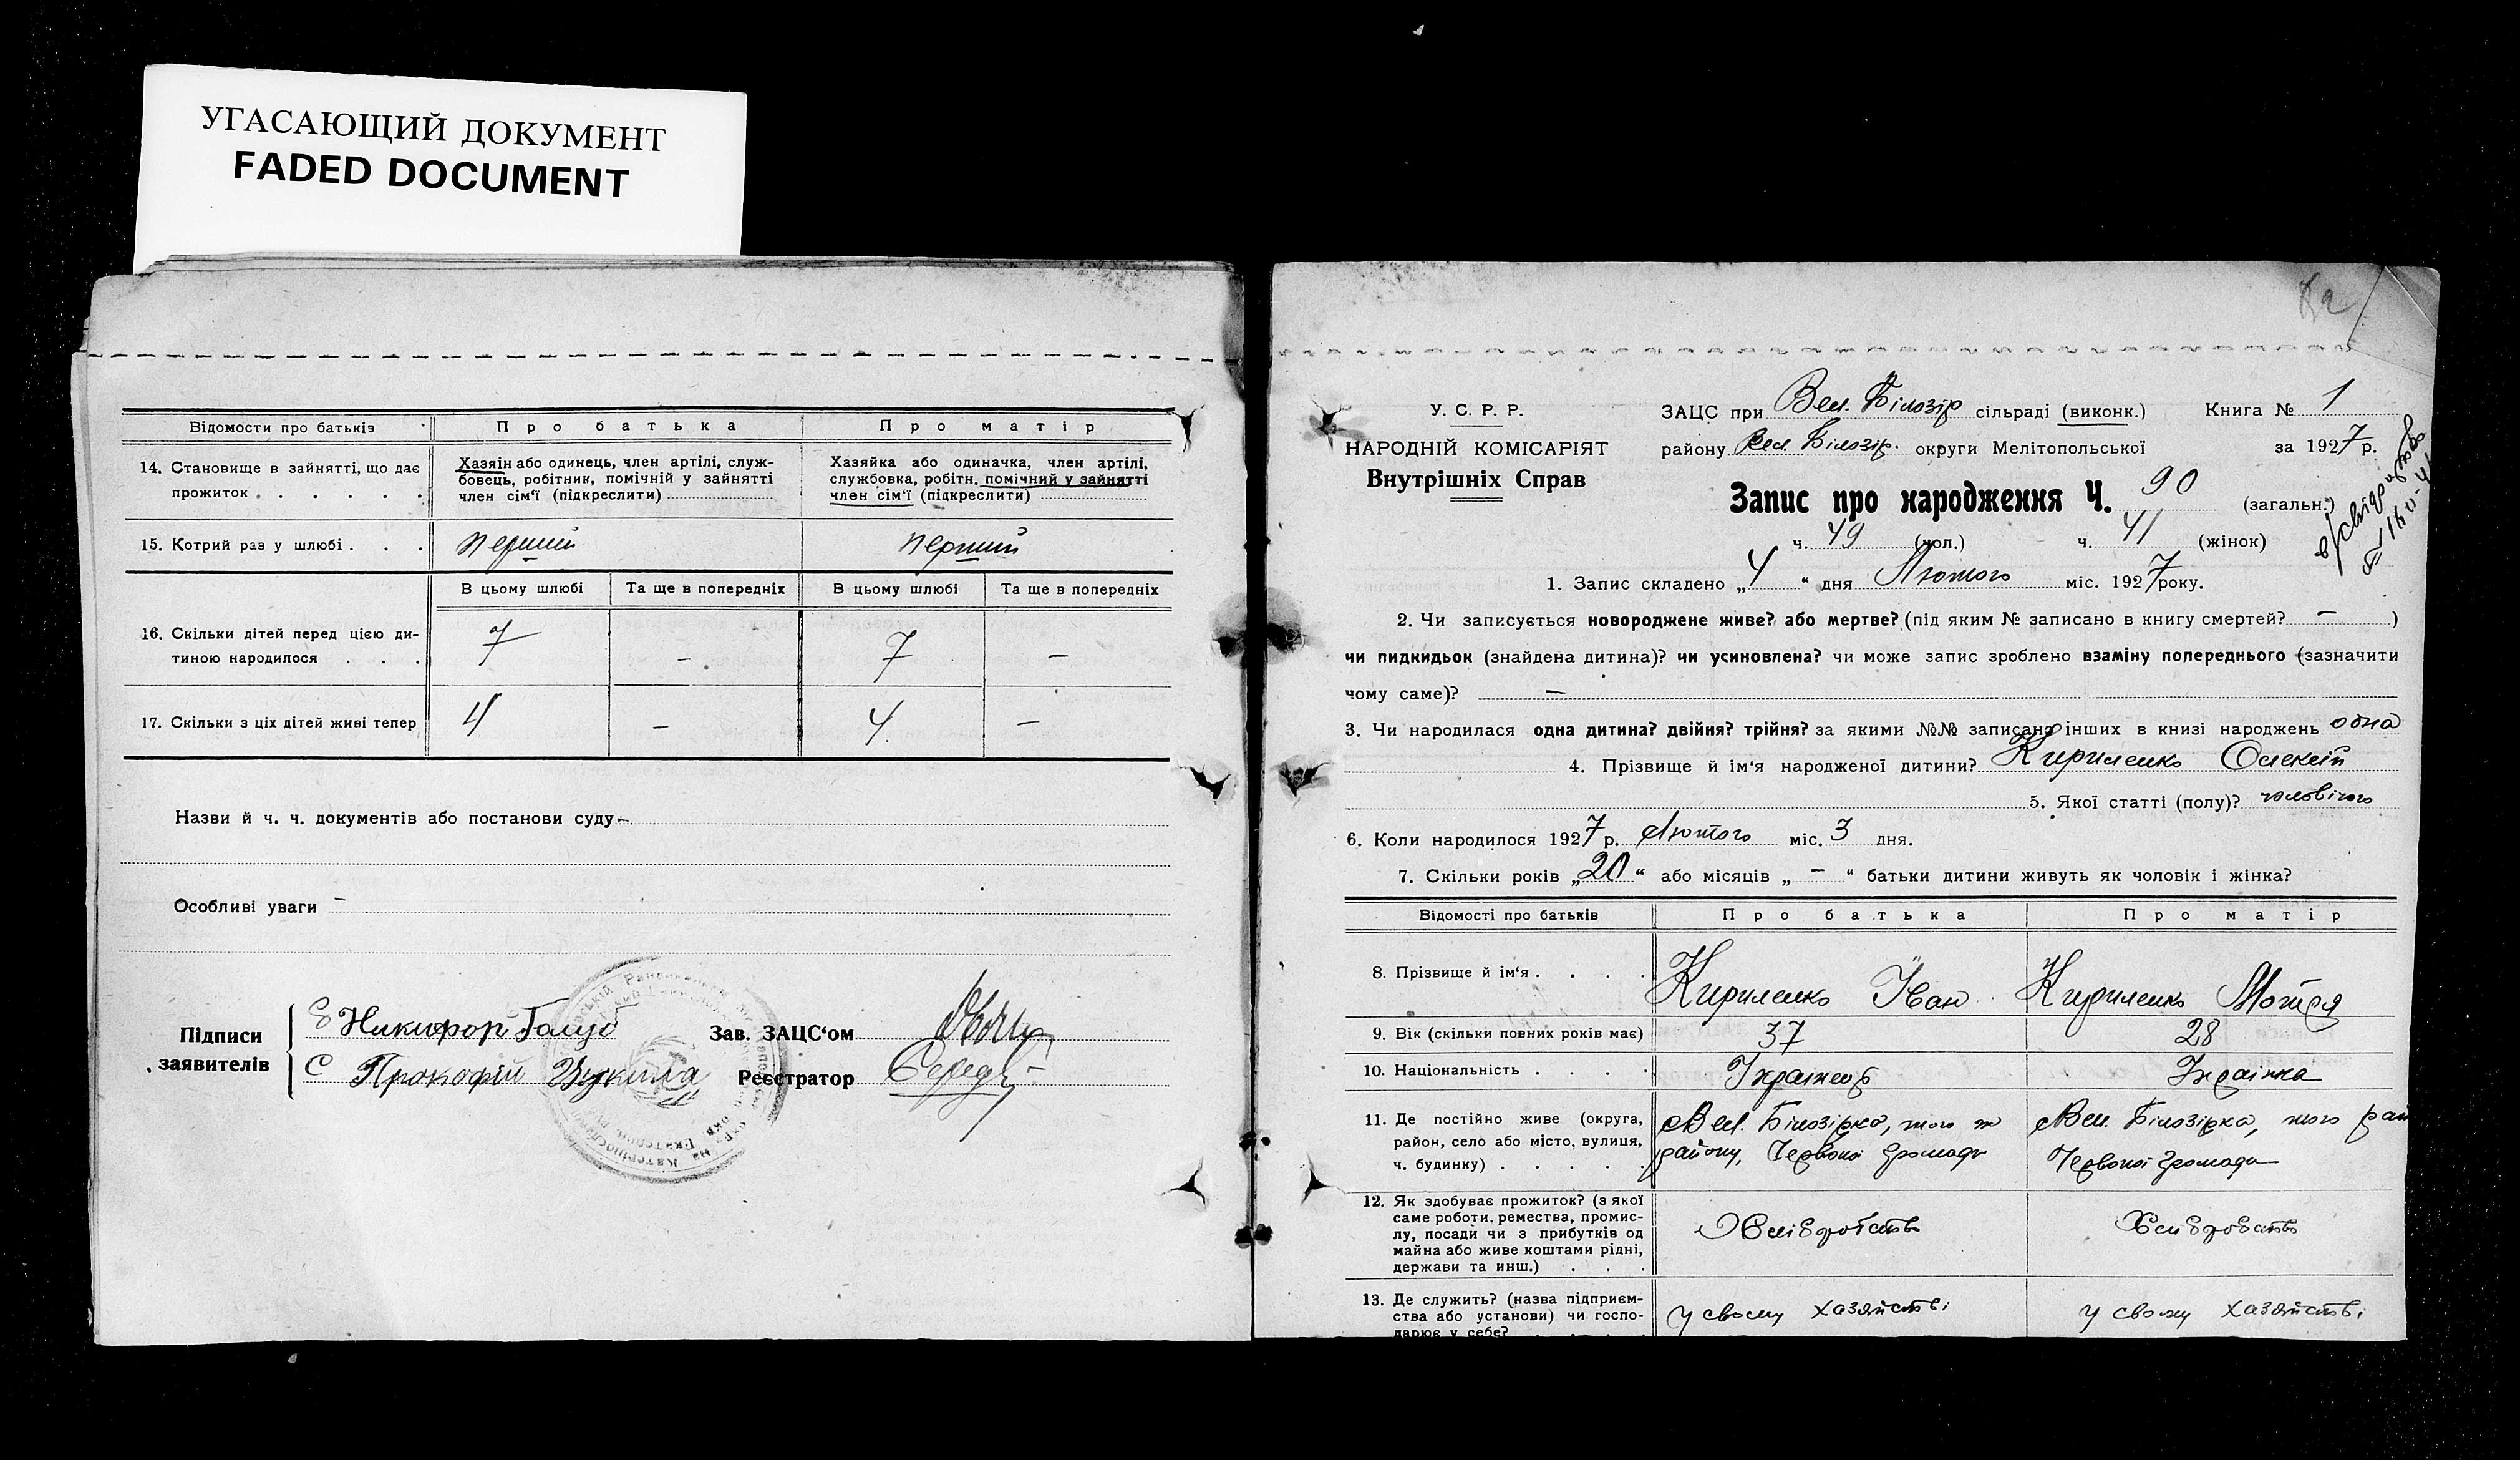 УГАСАЮЩИЙ ДОКУМЕНТ
FADED DOCUMENT
Відомости про батьків
Про батька
Про матір
14. Становище в зайнятті, що дає прожиток . . . . .
Хазяін або одинець, член артілі, служ-
бовець, робітник, помічній у зайнятті
член сім'ї (підкреслити)
Хазяйка або одиначка, член артілі,
службовка, робітн. помічний у зайнятті
член сім'ї (підкреслити)
15. Котрий раз у шлюбі . . .
перший
перший
В цьому шлюбі
Та ще в попередніх
В цьому шлюбі
Та ще в попередніх
16. Скільки дітей перед цією ди-
тиною народилося . . .
7
–
7
–
17. Скільки з ціх дітей живі тепер
4
–
4
–
Назви й ч. ч. документів або постанови суду –
Особливі уваги –
Підписи
заявителів
Никифор Голуб
Прокофій
Зав. ЗАЦС'ом
Реєстратор
У. С. Р. Р.
НАРОДНІЙ КОМІСАРІЯТ
Внутрішніх Справ
ЗАЦС при Вел. Білозір сільраді (виконк.)
Книга № 1
району Вел. Білозір. округи Мелітопольської
за 1927 р.
Запис про народження Ч. 90 (загальн.)
ч. 49 (чол.) ч. 41 (жінок)
1. Запис складено „4“ дня Лютого міс. 1927 року.
2. Чи записується новороджене живе? або мертве? (під яким № записано в книгу смертей? – )
чи пидкидьок (знайдена дитина)? чи усиновлена? чи може запис зроблено взаміну попереднього (зазначити
чому саме)? –
3. Чи народилася одна дитина? двійня? трійня? за якими №№ записано інших в книзі народжень одна
4. Прізвище й ім'я народженої дитини? Кириленко Олексій
5. Якої статті (полу)? чоловічого
6. Коли народилося 1927 р. Лютого міс. 3 дня.
7. Скільки років „20“ або місяців „ – “ батьки дитини живуть як чоловік і жінка?
Відомості про батьків
Про батька
Про матір
8. Прізвище й ім'я . . . .
Кириленко Іван
Кириленко Мотря
9. Вік (скільки повних років має)
37
28
10. Національність . . . .
Українець
Українка
11. Де постійно живе (округа,
район, село або місто, вулиця,
ч. будинку) . . . . .
Вел. Білозірка, того ж
району, Червоної громади
Вел. Білозірка, того рай
Червоної громади
12. Як здобуває прожиток? (з якої
саме роботи, ремества, промис-
лу, посади чи з прибутків од
майна або живе коштами рідні,
держави та инш.) . . .
Хліборобство
Хліборобство
13. Де служить? (назва підприєм-
ства або установи) чи госпо-
дарює у себе? . . . .
у свому хазяйстві
у свому хазяйстві